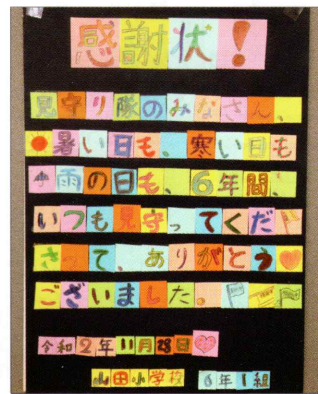 感謝状！
見守り隊のみなさん、
暑い日も、寒い日も
雨の日も、6年間、
いつも見守ってくだ
さって、ありがとう
ございました。
令和2年11月28日
山田小学校 6年1組